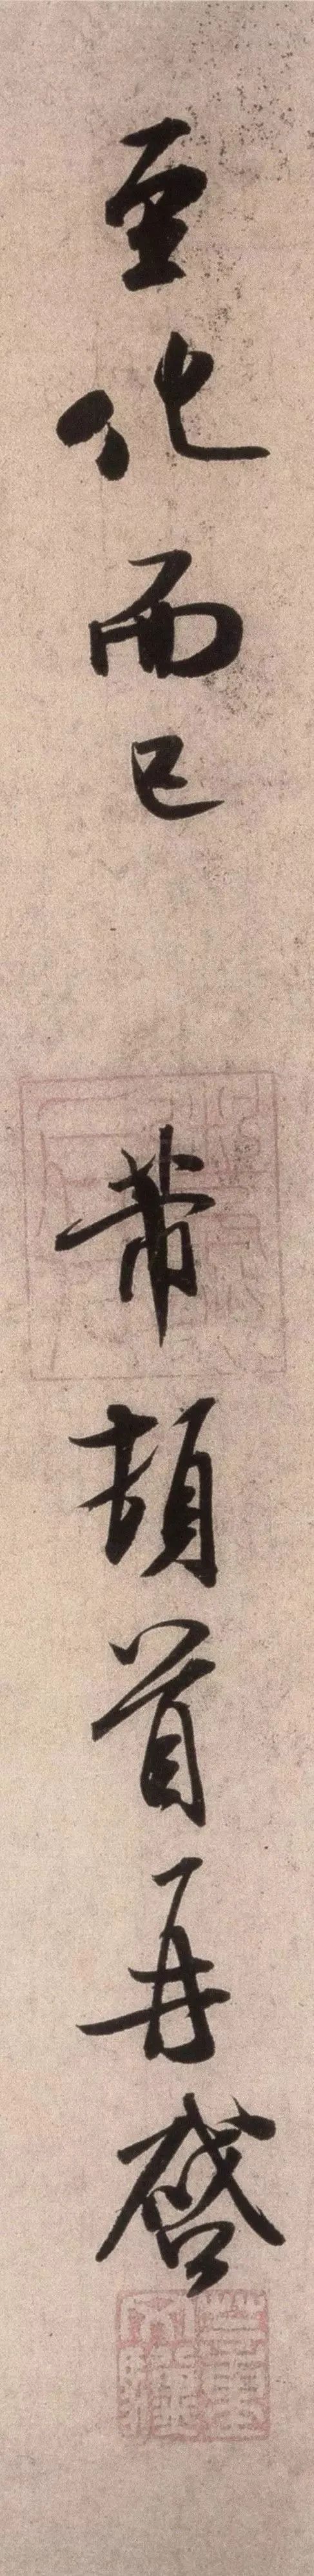 至化而已　芾頓首再啓